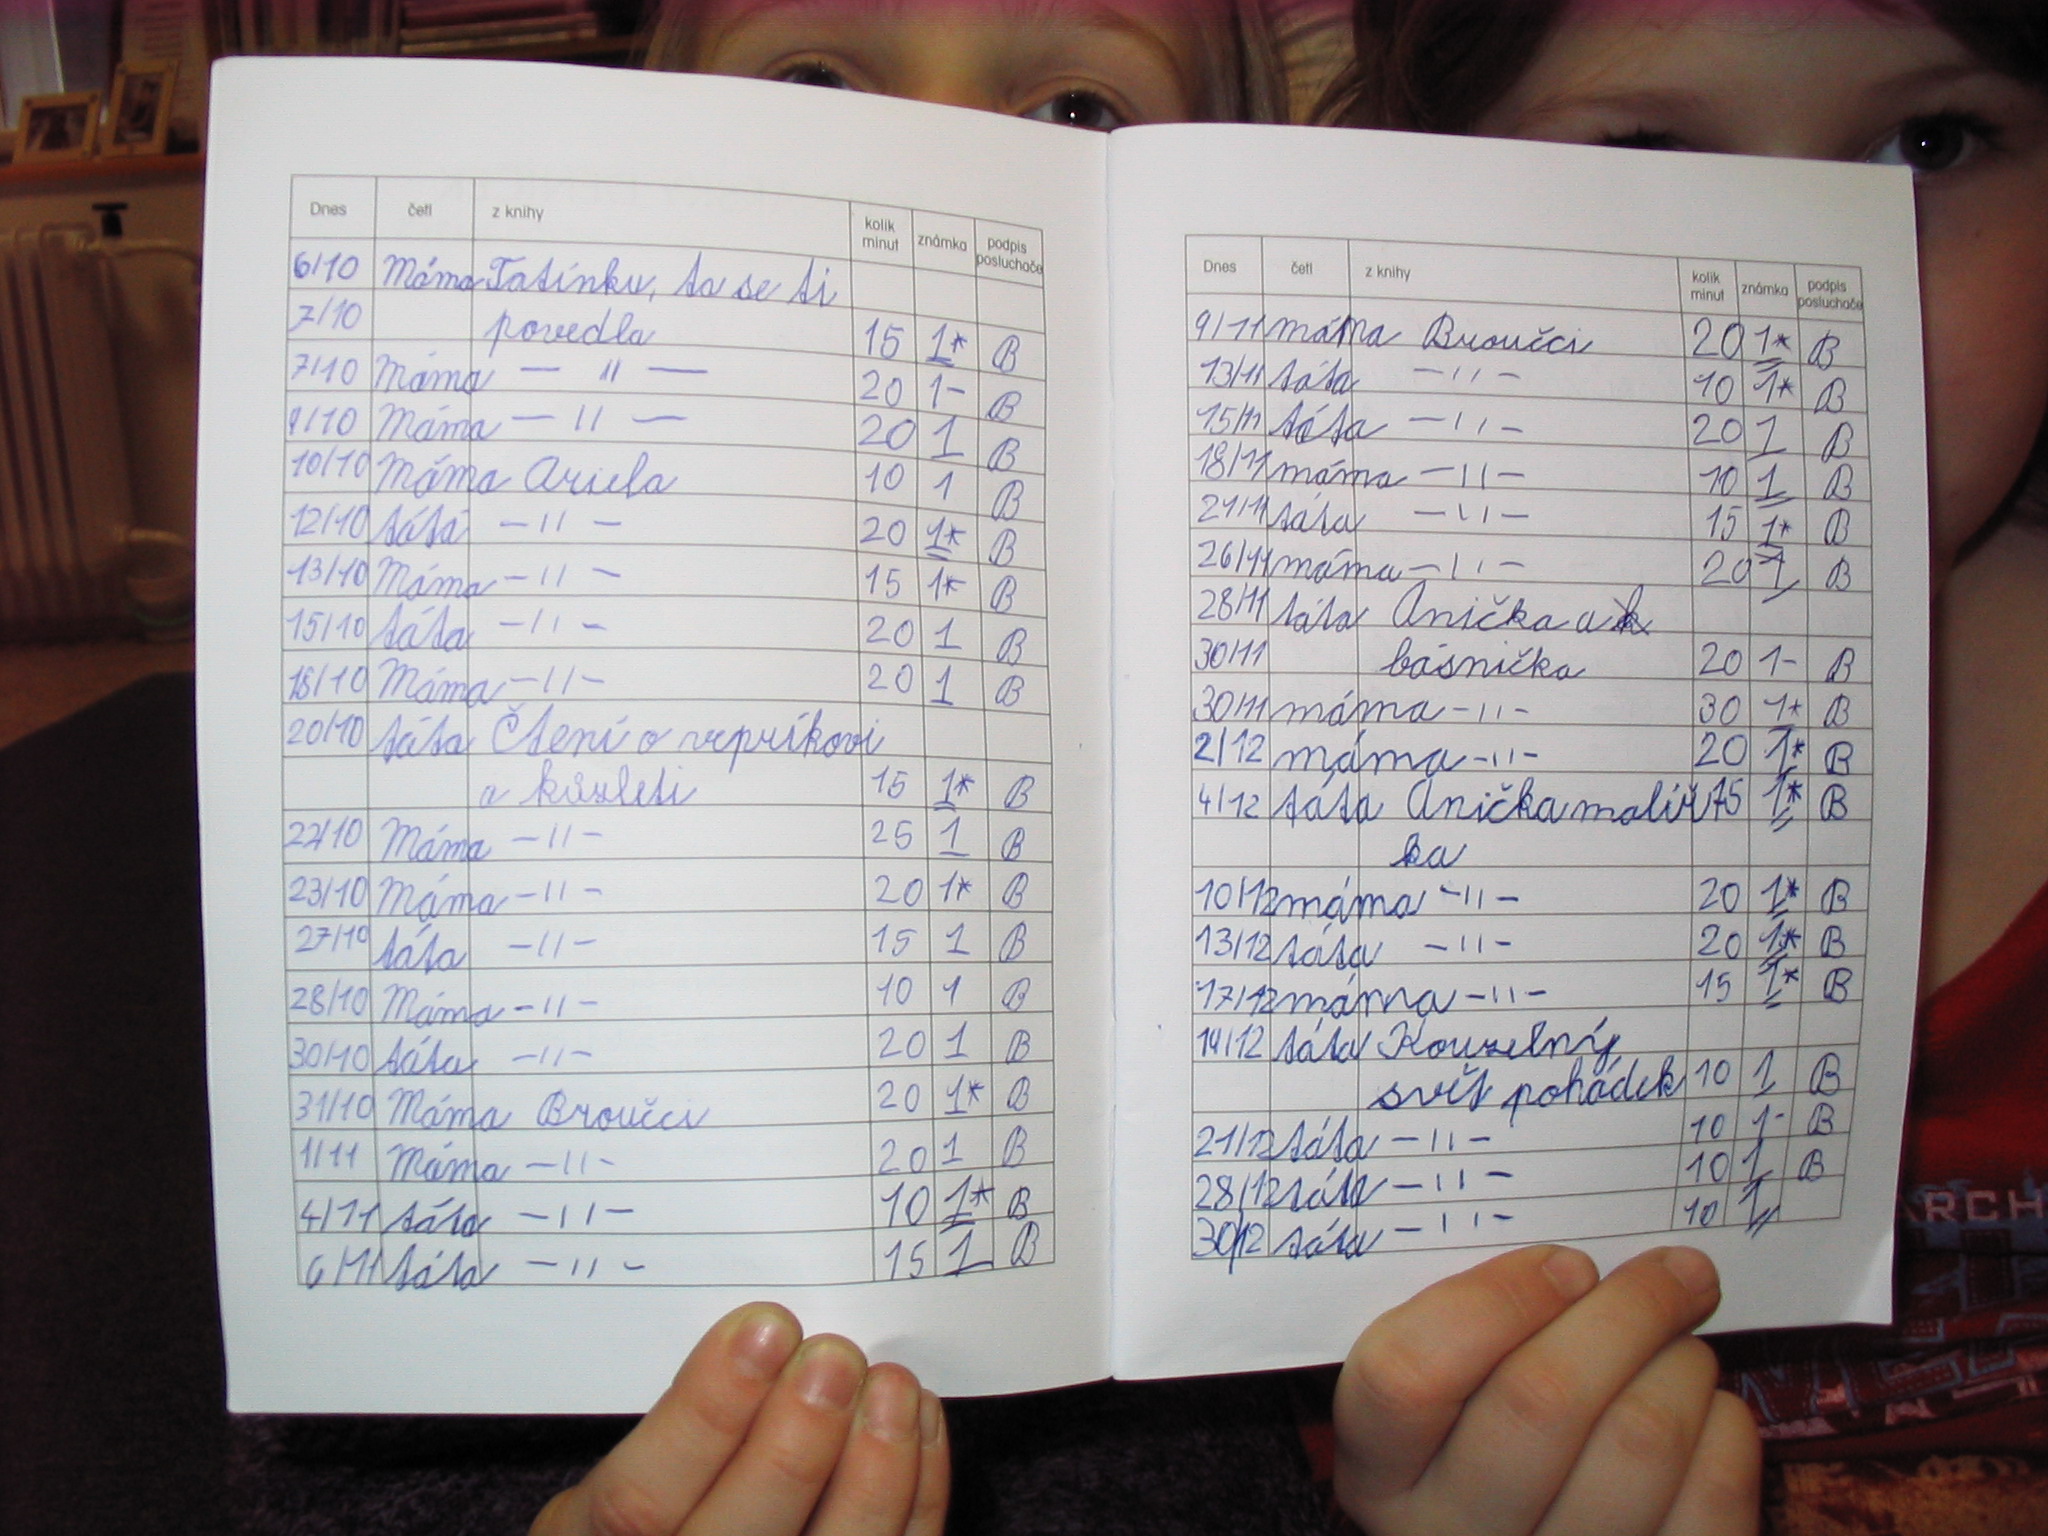 Dnes četl z knihy kolik minut známka podpis posluchače
6/10 Máma Tatínku, ta se ti
7/10 povedla 15 1* B
7/10 Máma — 〃 — 20 1- B
9/10 Máma — 〃 — 20 1 B
10/10 Máma Ariela 10 1 B
12/10 táta — 〃 — 20 1* B
13/10 Máma — 〃 — 15 1* B
15/10 táta — 〃 — 20 1 B
18/10 Máma — 〃 — 20 1 B
20/10 táta Čtení o vepříkovi
a kůzleti 15 1* B
22/10 Máma — 〃 — 25 1 B
23/10 Máma — 〃 — 20 1* B
27/10 táta — 〃 — 15 1 B
28/10 Máma — 〃 — 10 1 B
30/10 táta — 〃 — 20 1 B
31/10 Máma Broučci 20 1* B
1/11 Máma — 〃 — 20 1 B
4/11 táta — 〃 — 10 1* B
6/11 táta — 〃 — 15 1 B
Dnes četl z knihy kolik minut známka podpis posluchače
9/11 máma Broučci 20 1* B
13/11 táta — 〃 — 10 1* B
15/11 táta — 〃 — 20 1 B
18/11 máma — 〃 — 10 1 B
21/11 táta — 〃 — 15 1* B
26/11 máma — 〃 — 20 1 B
28/11 táta Anička a
30/11 básnička 20 1- B
30/11 máma — 〃 — 30 1* B
2/12 máma — 〃 — 20 1* B
4/12 táta Anička malíř 15 1* B
ka
10/12 máma — 〃 — 20 1* B
13/12 táta — 〃 — 20 1* B
17/12 máma — 〃 — 15 1* B
19/12 táta Kouzelný
svět pohádek 10 1 B
21/12 táta — 〃 — 10 1- B
28/12 táta — 〃 — 10 1 B
30/12 táta — 〃 — 10 1
ARCH